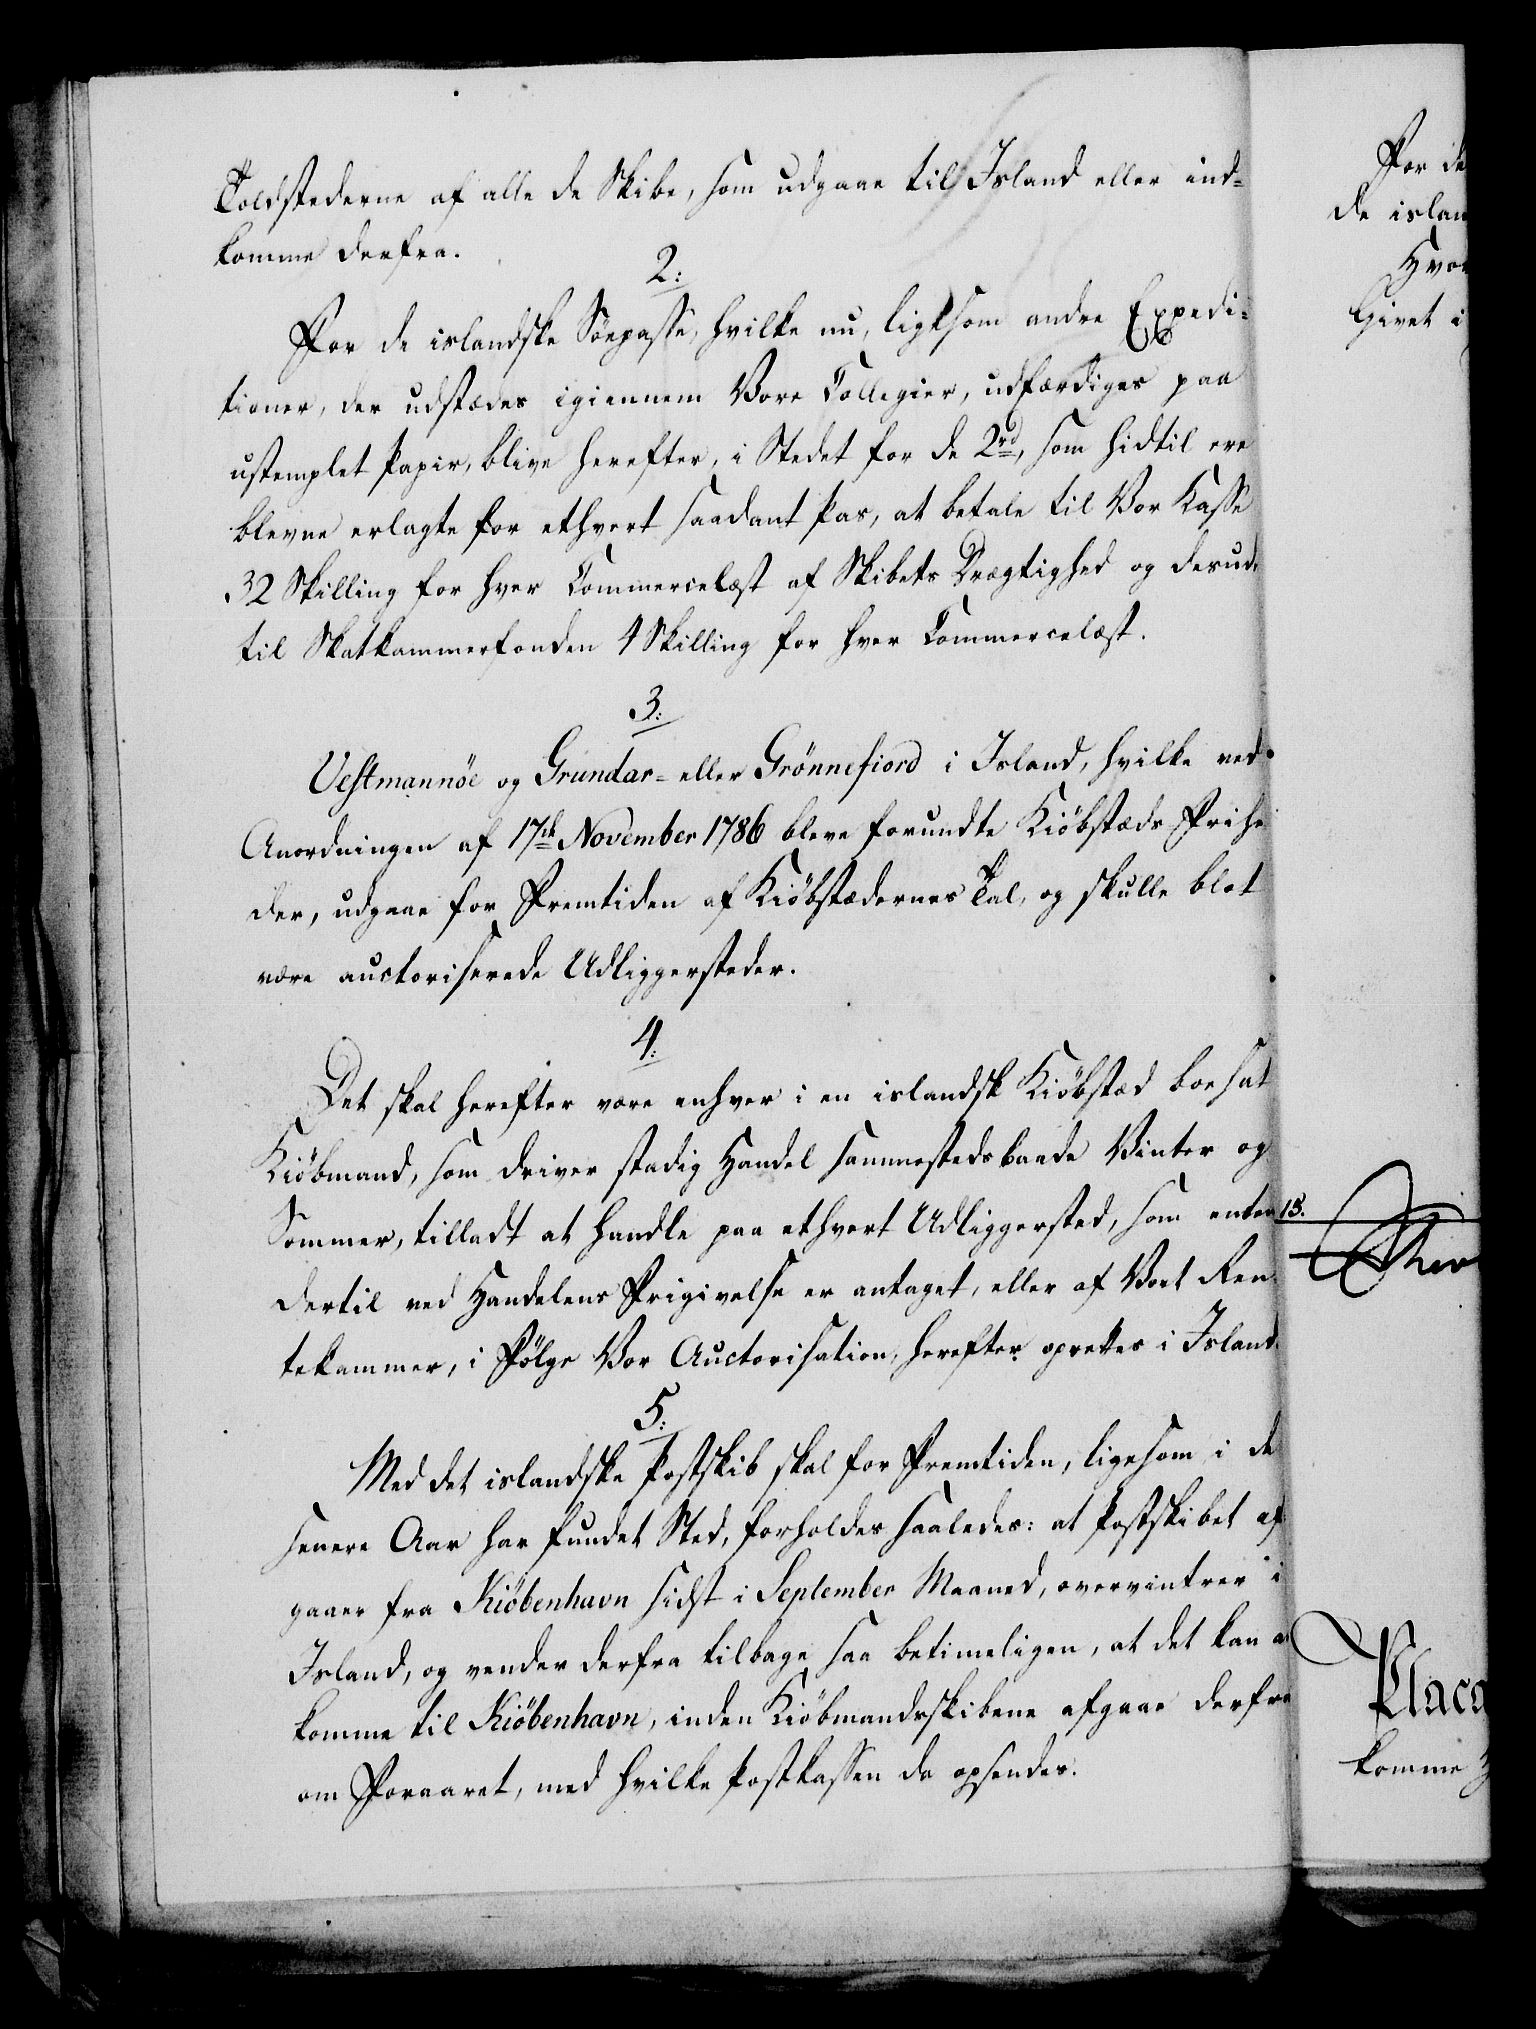 Toldstederne af alle de Skibe, som udgaae til Island eller ind-
komme derfra.
2:
For de islandske Söepasse, hvilke nu, ligesom andre Expedi-
tioner, der udstædes igiennem Vore Collegier, udfærdiges paa
ustemplet Papir, blive herefter, i Stedet for de 2rd, som hidtil ere
blevne erlagte for ethvert saadant Pas, at betale til Vor Kasse
32 Skilling for hver Commercelæst af Skibets Drægtighed og desud.
til Skatkammerfonden 4 Skilling for hver Commercelæst.
3:
Vestmannöe og Grundar- eller Grönnefiord i Island, hvilke ved
Anordningen af 17de November 1786 bleve forundte Kiöbstæds Frihe
der, udgaae for Fremtiden af Kiöbstædernes Tal, og skulle blot
være auctoriserede Udliggersteder.
4:
Det skal herefter være enhver i en islandsk Kiöbstæd boesat
Kiöbmand, som driver stadig Handel sammesteds baade Vinter og
Sommer, tilladt at handle paa ethvert Udliggersted, som enten
dertil ved Handelens Frigivelse er antaget, eller af Vort Ren-
tekammer, i Fölge Vor Auctorisation, herefter oprettes i Island.
5:
Med det islandske Postskib skal for Fremtiden, ligesom i de
senere Aar har fundet Sted, forholdes saaledes: at Postskibet af
gaaer fra Kiöbenhavn sidst i September Maaned, overvintrer i
Island, og vender derfra tilbage saa betimeligen, at det kan a
komme til Kiöbenhavn, inden Kiöbmandsskibene afgaae derfra
om Foraaret, med hvilke Postkassen da opsendes.
For de
de islan
Hvor
Givet i
15.
Placa
komme